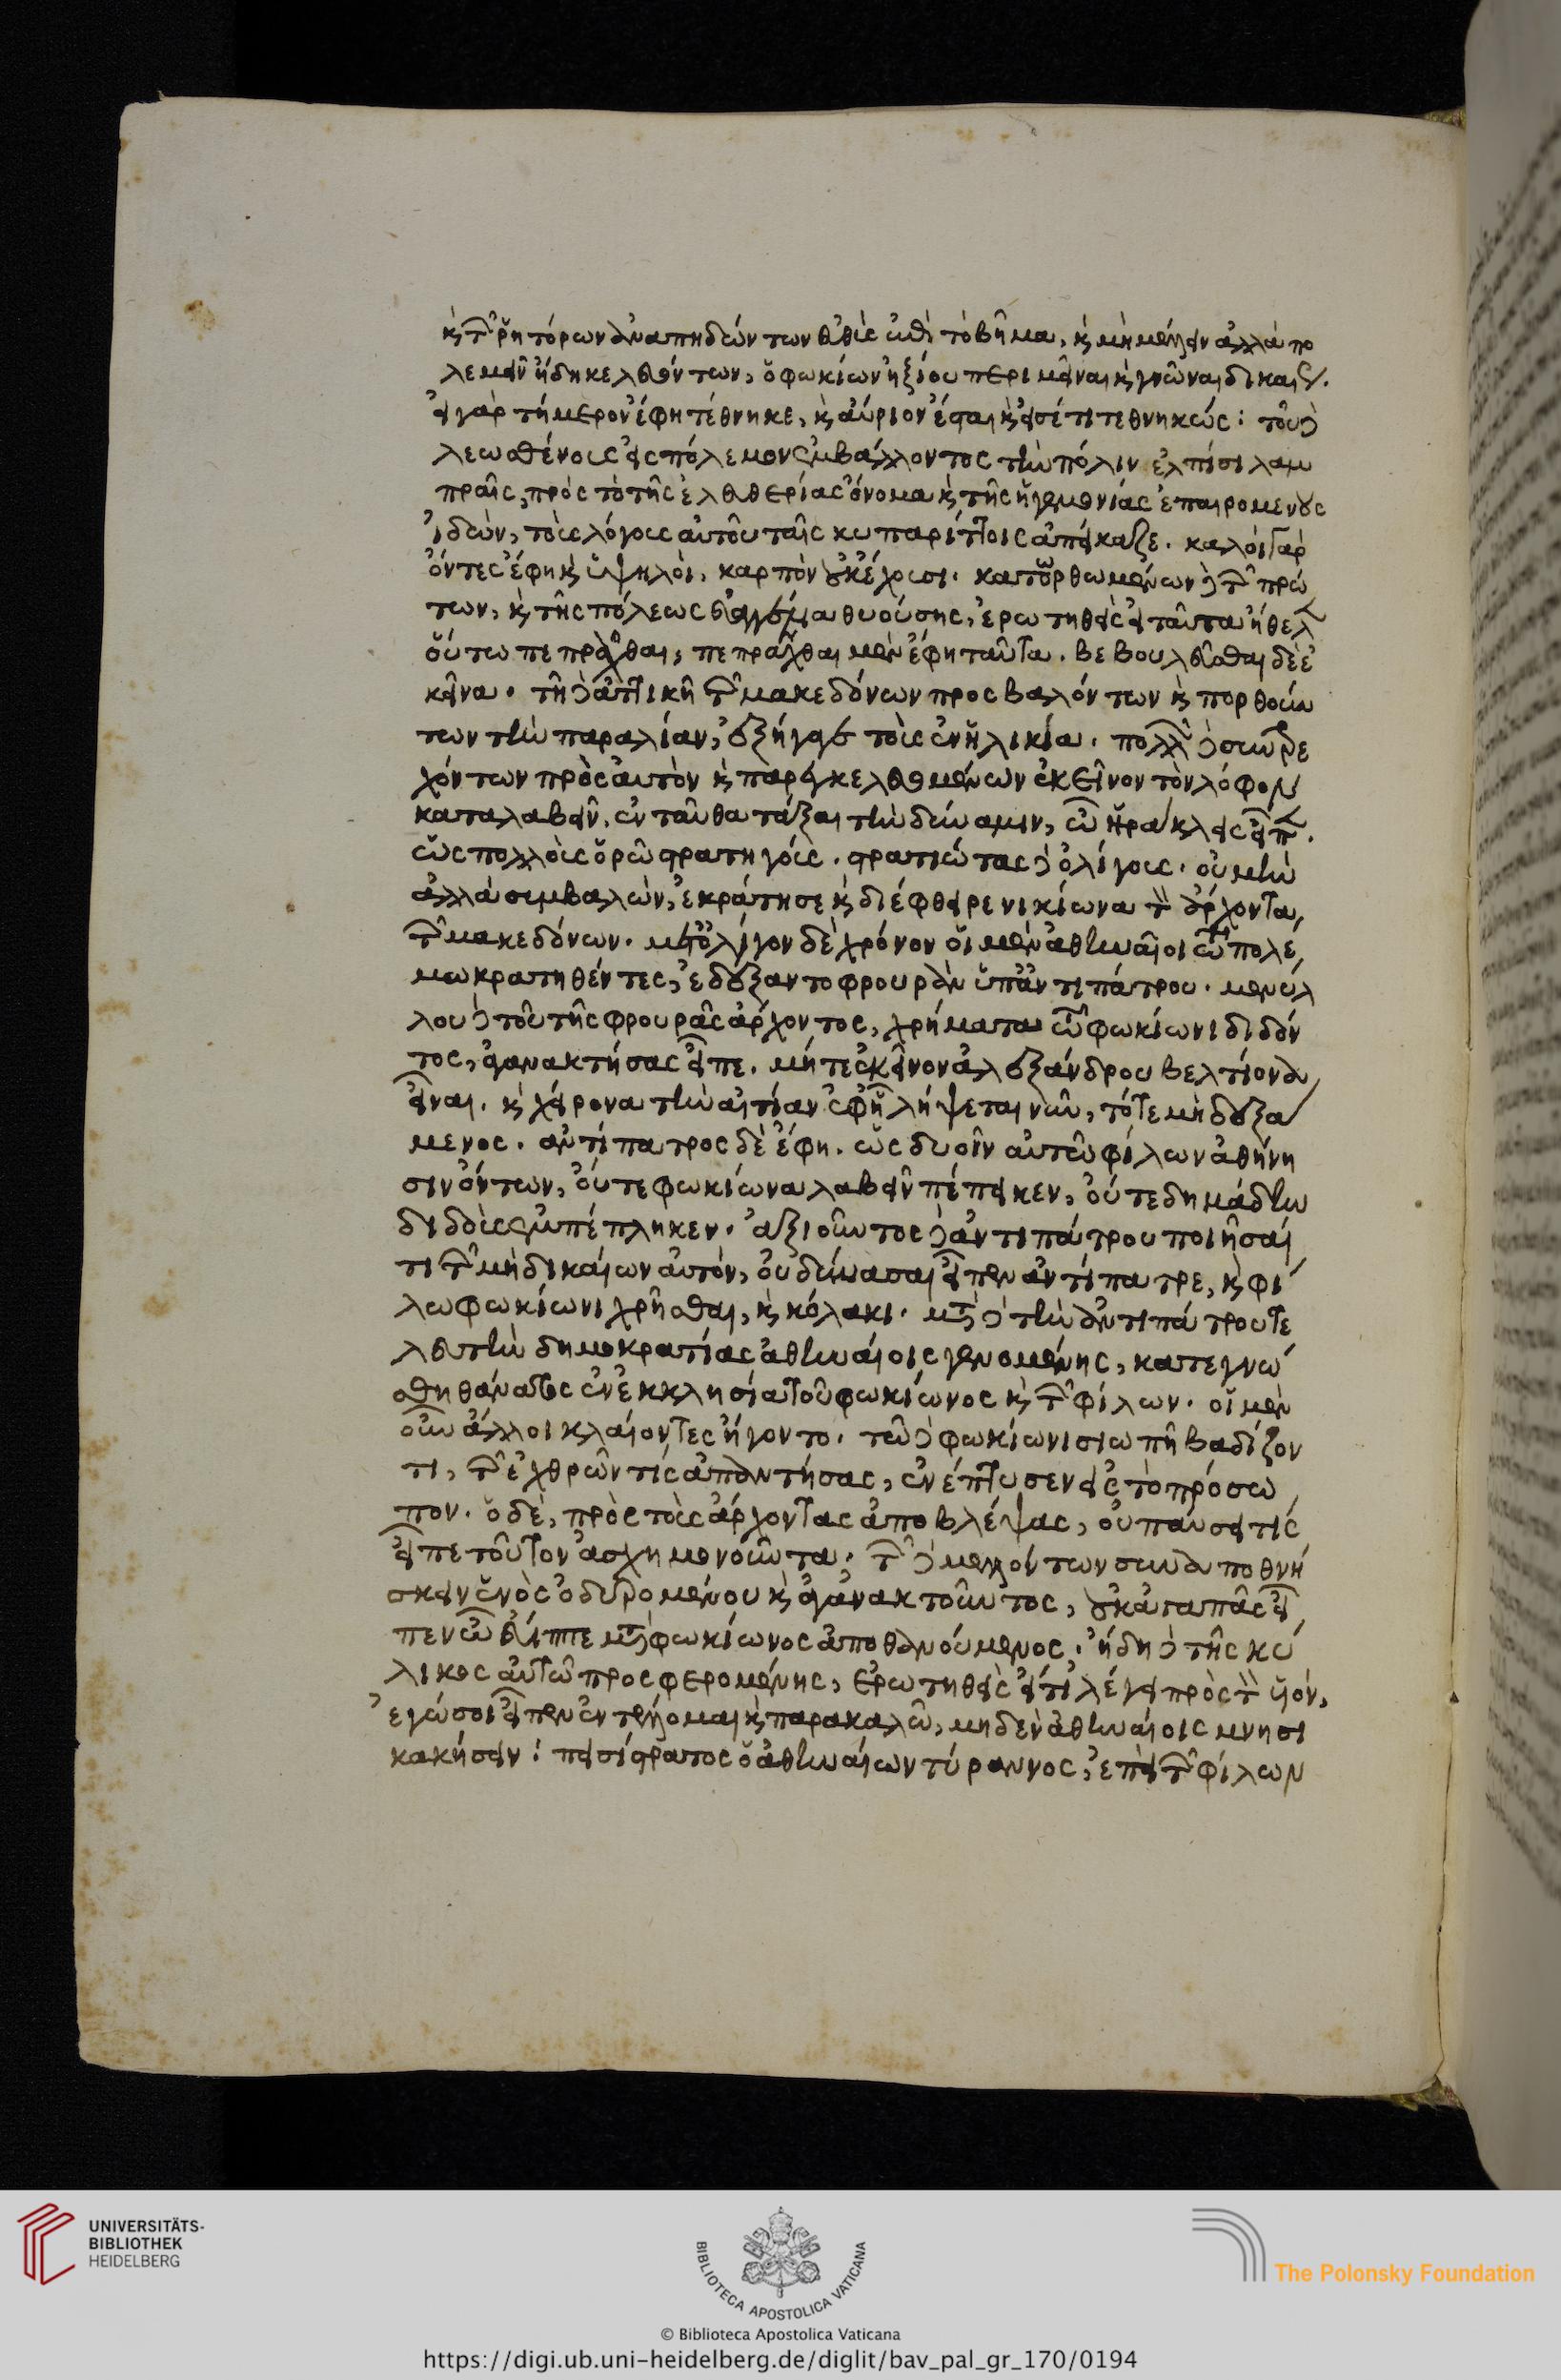 καὶ τῶν ῥητόρων ἀναπηδώντων εὐθὺς ἐπὶ τὸ βῆμα, καὶ μὴ μέλλειν ἀλλὰ πο
λεμεῖν ἤδη κελευόντων, ὁ φωκίων ἠξίου περιμεῖναι καὶ γνῶναι βεβαίως.
εἰ γὰρ τήμερον ἔφη τέθνηκε, καὶ αὔριον ἔσται καὶ εἰσέτι τεθνηκώς: τοῦ δὲ
λεωσθένους εἰς πόλεμον ἐμβάλλοντος τὴν πόλιν ἐλπίσι λαμ
πραῖς, πρὸς τὸ τῆς ἐλευθερίας ὄνομα καὶ τῆς ἡγεμονίας ἐπαιρομένους
ἰδὼν, τοὺς λόγους αὐτοῦ ταῖς κυπαρίττοις ἀπείκαζε. καλοὶ γὰρ
ὄντες ἔφη καὶ ὑψηλοὶ, καρπὸν οὐκ ἔχουσι. κατορθωμένων δὲ τῶν πρώ
των, καὶ τῆς πόλεως εὐαγγέλια θυούσης, ἐρωτηθεὶς εἰ ταῦτα ἤθελεν
οὕτω πεπράχθαι, πεπράχθαι μὲν ἔφη ταῦτα. βεβουλεῦσθαι δὲ ἐ
κεῖνα. τῇ δὲ ἀττικῇ τῶν μακεδόνων προσβαλόντων καὶ πορθούν
των τὴν παραλίαν, ἐξήγαγε τοὺς ἐν ἡλικίᾳ. πολλῶν δὲ συνδρε
χόντων πρὸς αὐτὸν καὶ παρακελευομένων ἐκεῖνον τὸν λόφον
καταλαβεῖν, ἐνταῦθα τάξαι τὴν δύναμιν, ὦ ἡράκλεις εἶπεν.
ὡς πολλοὺς ὁρῶ στρατηγοὺς. στρατιώτας δὲ ὀλίγους. οὐ μὴν
ἀλλὰ συμβαλὼν, ἐκράτησε καὶ διέφθειρε νικίωνα τὸν ἄρχοντα,
τῶν μακεδόνων. μετ' ὀλίγον δὲ χρόνον οἱ μὲν ἀθηναῖοι τῷ πολέ
μω κρατηθέντες, ἐδέξαντο φρουρὰν ὑπ' ἀντιπάτρου. μενύλ
λου δὲ τοῦ τῆς φρουρᾶς ἄρχοντος, χρήματα τῷ φωκίωνι διδόν
τος, ἀγανακτήσας εἶπε. μήτε ἐκεῖνον ἀλεξάνδρου βελτίονα
εἶναι. καὶ χείρονα τὴν αἰτίαν ἐφ' ᾗ λήψεται νῦν, τότε μὴ δεξά
μενος. ἀντίπατρος δὲ ἔφη. ὡς δυοῖν αὐτῷ φίλων ἀθήνη
σιν ὄντων, οὔτε φωκίωνα λαβεῖν πέπεικεν, οὔτε δημάδην
διδοὺς ἐμπέπληκεν. ἀξιοῦντος δὲ ἀντιπάτρου ποιῆσαί
τι τῶν μὴ δικαίων αὐτὸν, οὐ δύνασαι εἶπεν ἀντίπατρε, καὶ φί
λω φωκίωνι χρῆσθαι, καὶ κόλακι. μετὰ δὲ τὴν ἀντιπάτρου τε
λευτὴν δημοκρατίας ἀθηναίοις γενομένης, κατεγνώ
σθη θάνατος ἐν ἐκκλησία τοῦ φωκίωνος καὶ τῶν φίλων. οἱ μὲν
οὖν ἄλλοι κλαίοντες ἤγοντο. τῷ δὲ φωκίωνι σιωπῇ βαδίζον
τι, τῶν ἐχθρῶν τίς ἀπαντήσας, ἐνέπτυσεν εἰς τὸ πρόσω
πον. ὁ δὲ, πρὸς τοὺς ἄρχοντας ἀποβλέψας, οὐ παύσει τίς
εἶπε τοῦτον ἀσχημονοῦντα. τῶν δὲ μελλόντων συναποθνή
σκειν ἑνὸς ὀδυρομένου καὶ ἀγανακτοῦντος, οὐκ ἀγαπᾶς εἶ
πεν ὦ εὔιππε μετὰ φωκίωνος ἀποθανούμενος. ἤδη δὲ τῆς κύ
λικος αὐτῷ προσφερομένης, ἐρωτηθεὶς εἴ τι λέγει πρὸς τὸν υἱὸν,
ἐγώ σοι εἶπεν ἐντέλλομαι καὶ παρακαλῶ, μηδὲν ἀθηναίοις μνησι
κακήσειν: πεισίστρατος ὁ ἀθηναίων τύραννος, ἐπεὶ τῶν φίλων
UNIVERSITÄTS-
BIBLIOTHEK
HEIDELBERG
BIBLIOTECA APOSTOLICA VATICANA
The Polonsky Foundation
© Biblioteca Apostolica Vaticana
https://digi.ub.uni-heidelberg.de/diglit/bav_pal_gr_170/0194